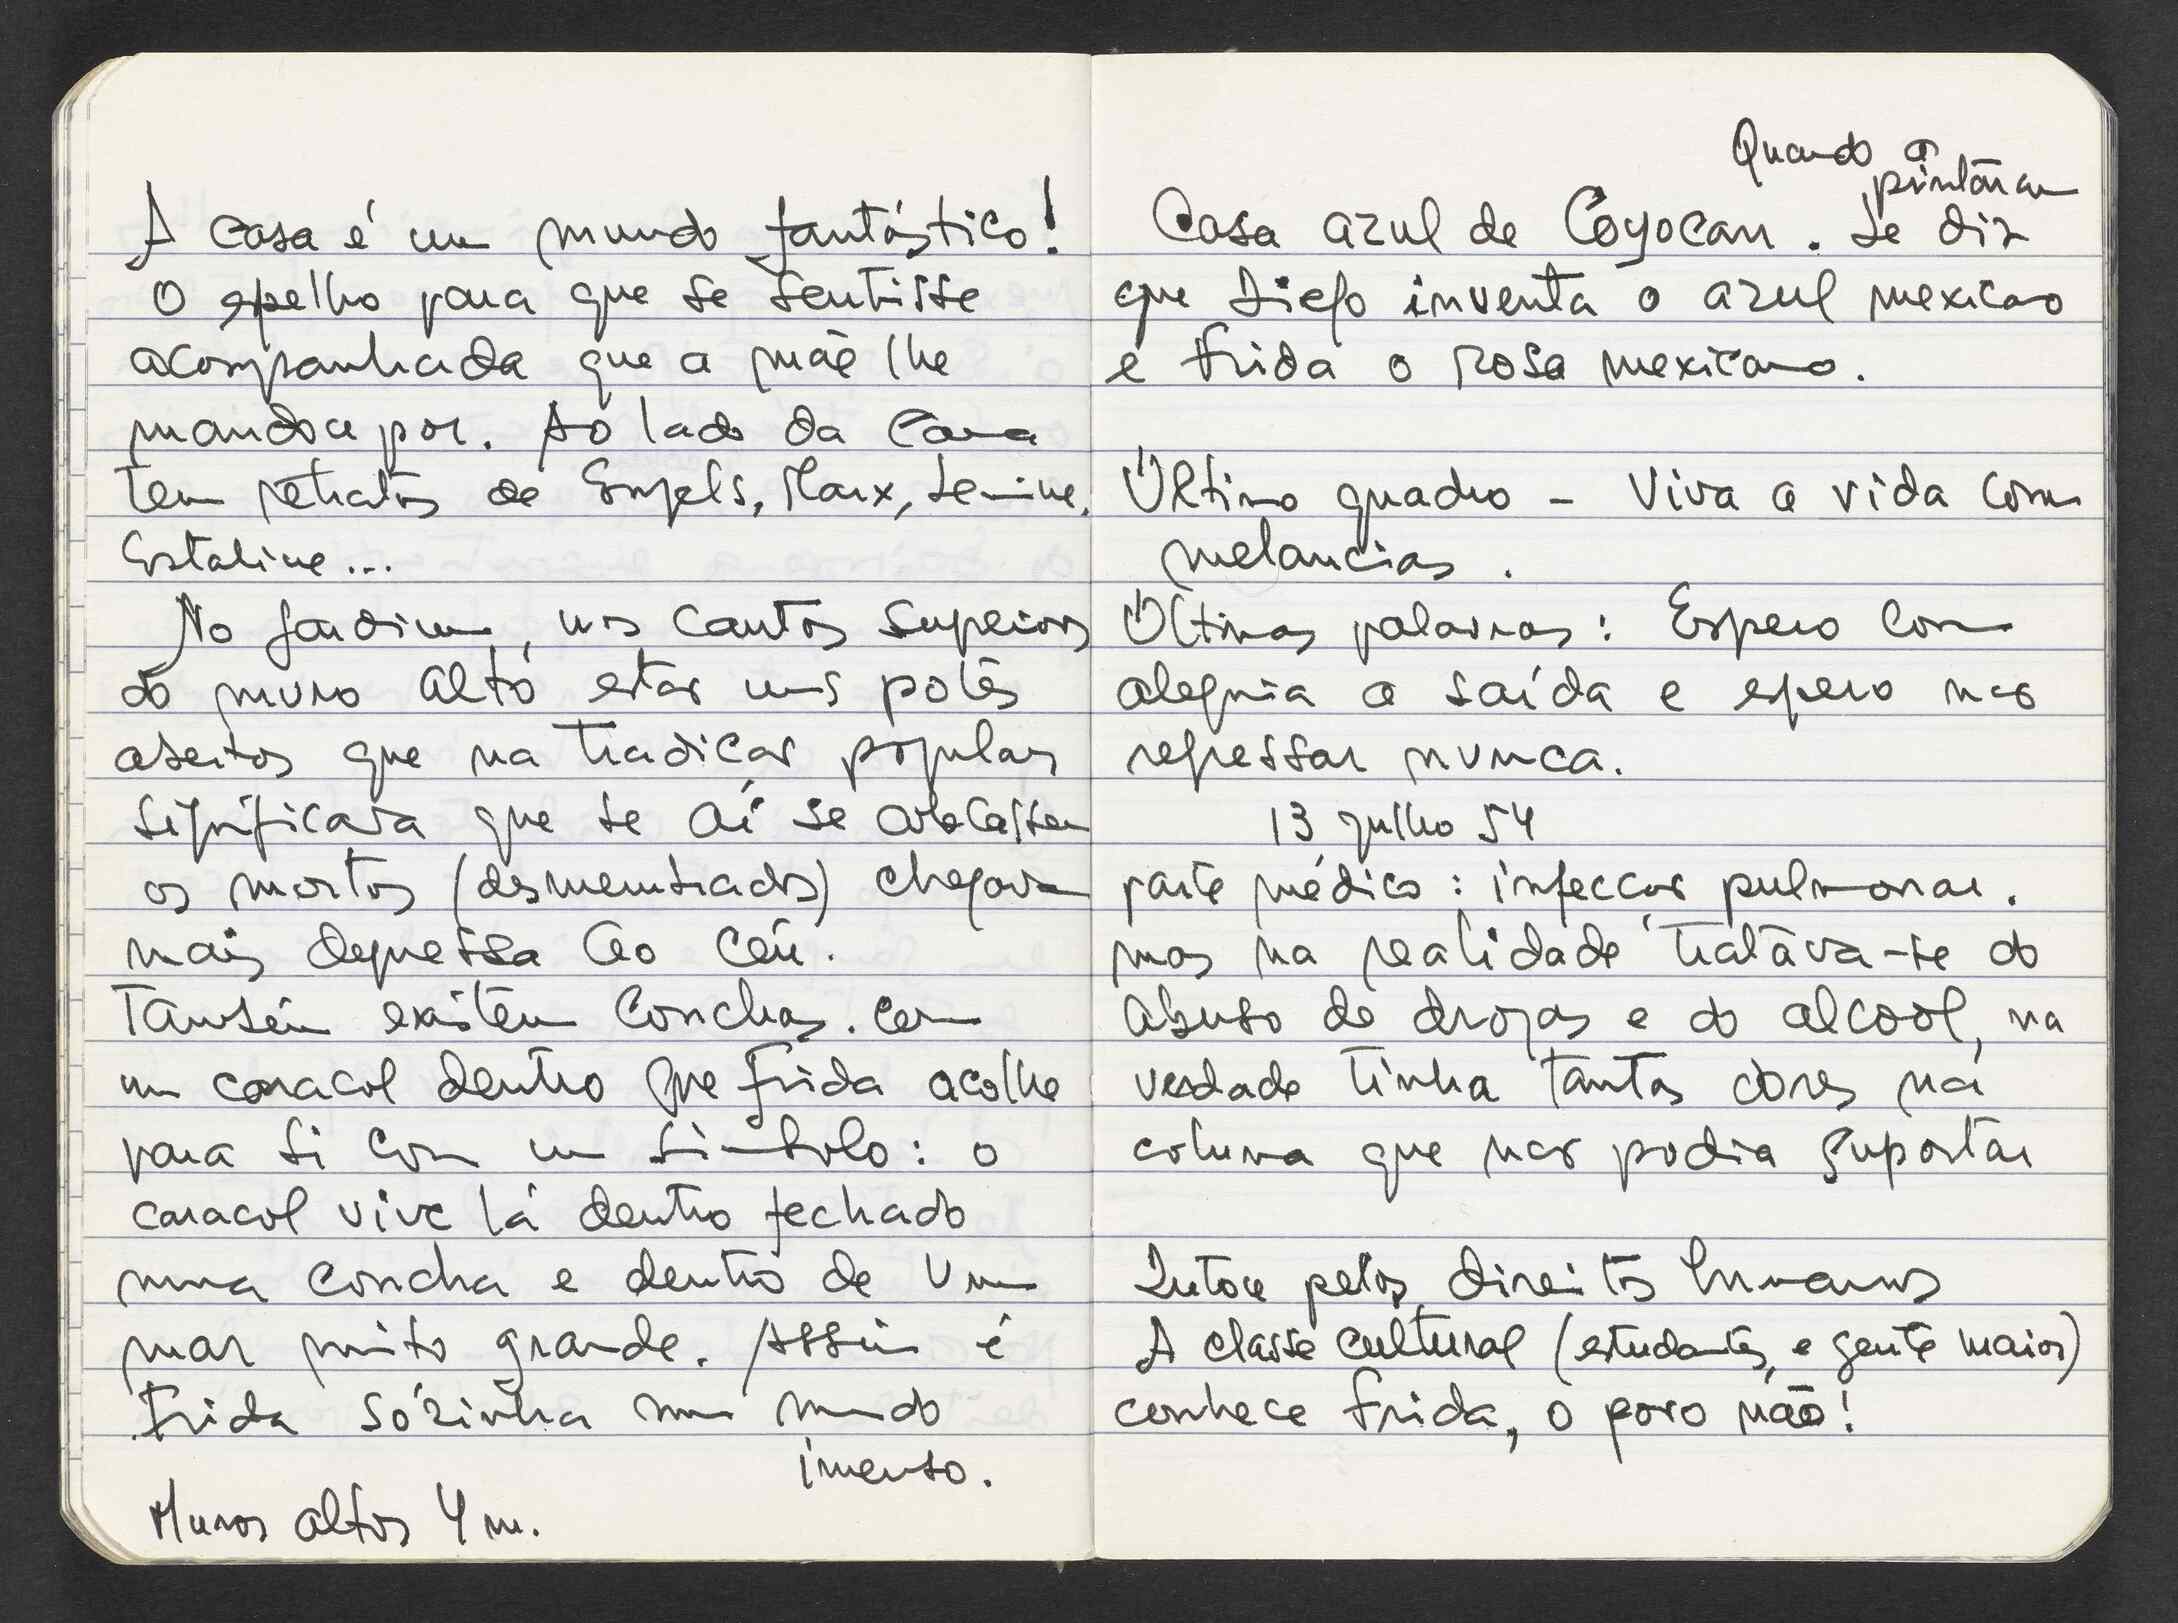 A casa é um mundo fantástico!
O espelho para que se sentisse
acompanhada que a mãe lhe
mandou por. Ao lado da cama
tem retratos de Engels, Marx, Lenine,
Estaline...
No jardim, nos cantos superiores
do muro alto estão uns potes
abertos que na tradição popular
significava que se aí se colocassem
os mortos (desmembrados) chegavam
mais depressa ao céu.
Também existem conchas. com
um caracol dentro que Frida acolhe
para si com um simbolo: o
caracol vive lá dentro fechado
numa concha e dentro de um
mar muito grande. Assim é
Frida sózinha num mundo
imenso.
Muros altos 4 m.
Quando a
pintaram
Casa azul de Coyocan. Se diz
que Diego inventa o azul mexicano
e Frida o rosa mexicano.
Último quadro - Viva a vida com
melancias.
Últimas palavras: Espero com
alegria a saída e espero não
regressar nunca.
13 julho 54
parte médico: infecção pulmonar.
mas na realidade tratáva-se do
abuso de drogas e do alcool, na
verdade tinha tantas dores na
coluna que não podia suportar
Lutou pelos direitos humanos
A classe cultural (estudantes, e gente maior)
conhece Frida, o povo não!